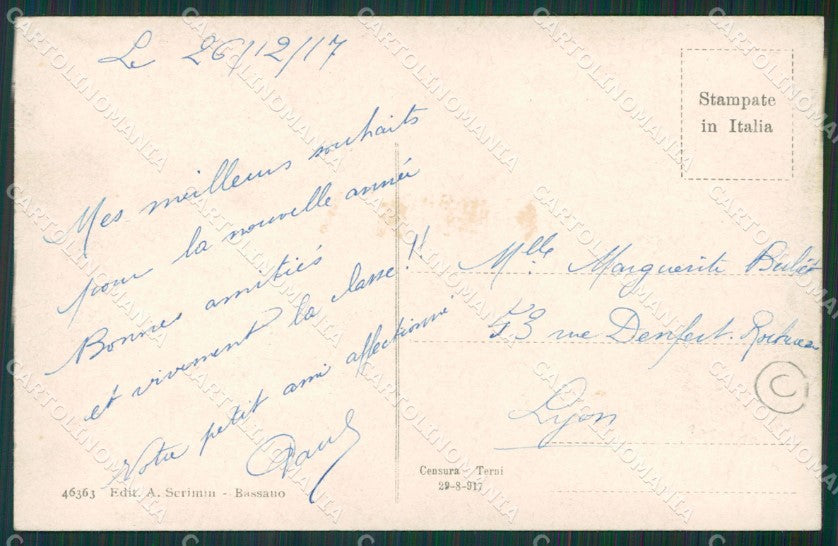 Le 26/12/17
Mes meilleurs souhaits
pour la nouvelle année
Bonnes amitiés
et vivement la classe !!
Votre petit ami affectionné
Paul
46363 Edit. A. Scrimin - Bassano
Stampate
in Italia
Mlle Marguerite
53 rue Denfert-Rochereau
Lyon
Censura - Terni
29-8-917
C
CARTOLINOMANIA